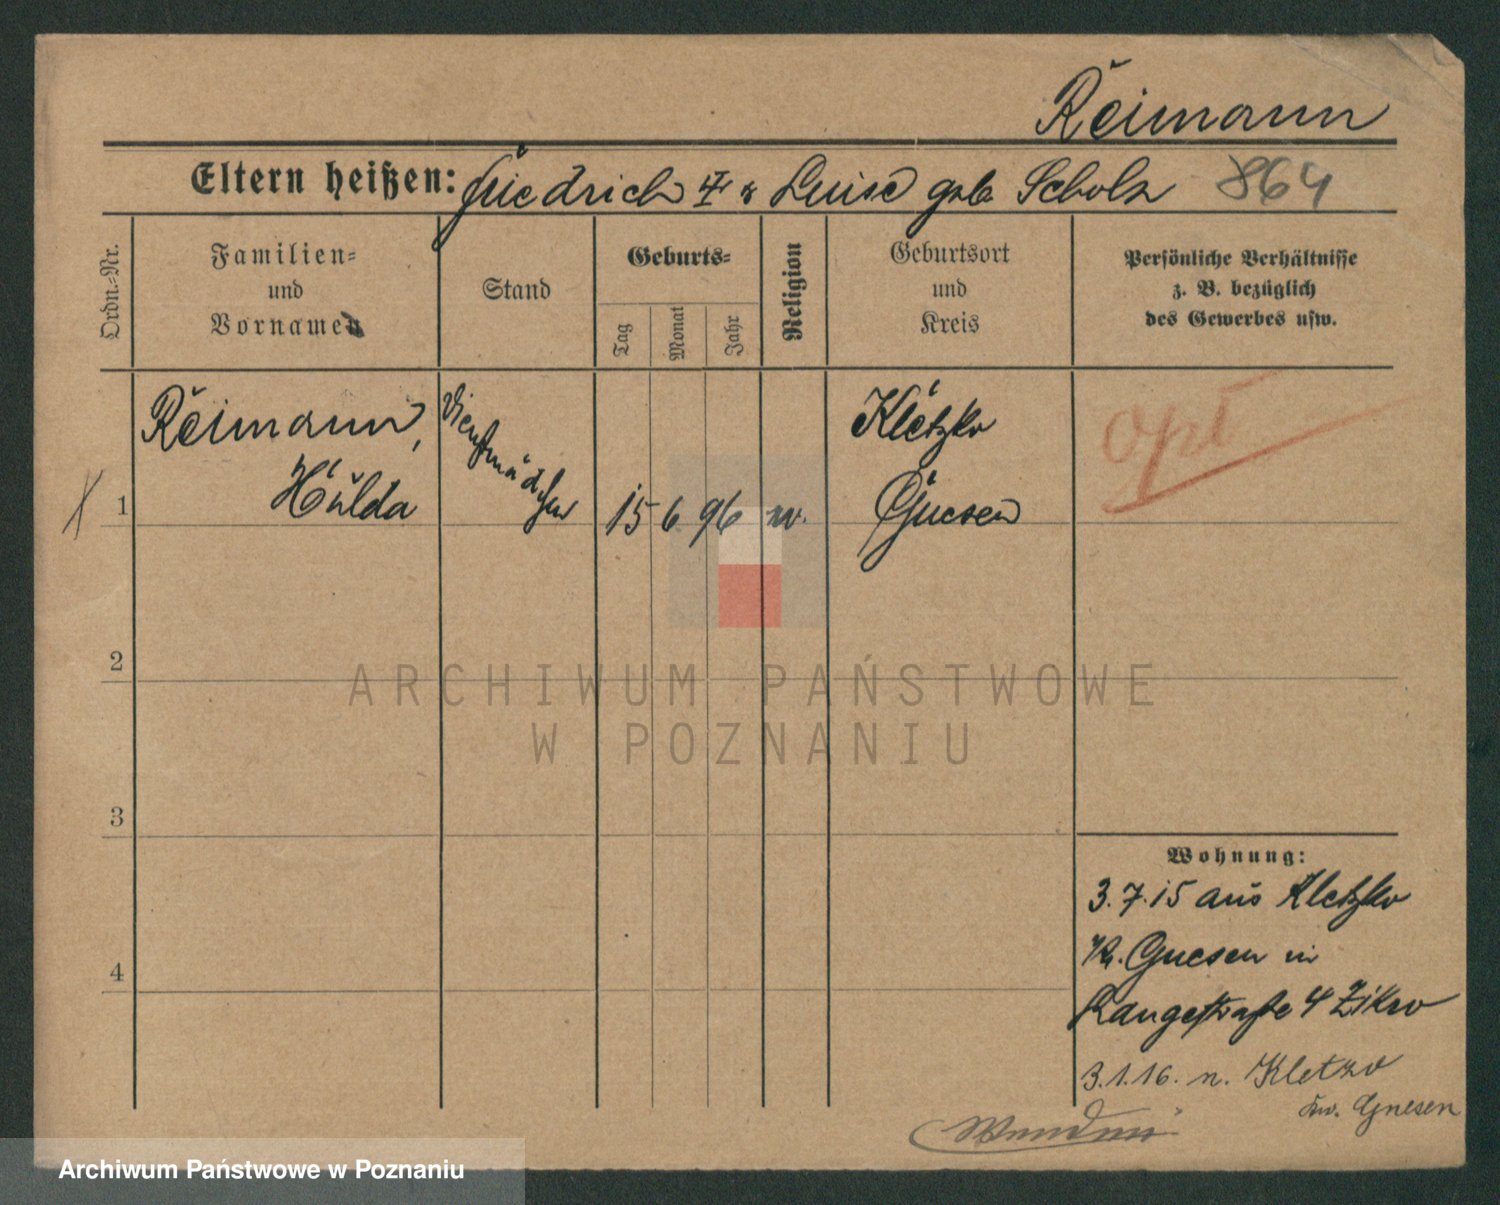 Reimann
Eltern heißen: Friedrich & Luise geb. Scholz 864
Ordn.-Nr.
Familien-
und
Vornamen
Stand
Geburts-
Tag
Monat
Jahr
Religion
Geburtsort
und
Kreis
Persönliche Verhältnisse
z. B. bezüglich
des Gewerbes usw.
1
Reimann,
Hulda
Dienstmädchen
15 6 96
Kletzko
Gnesen
opt
2
3
4
Wohnung:
3.7.15 aus Kletzko
Kr. Gnesen in
Langestraße 4
3.1.16. n. Kletzko
Kr. Gnesen
ARCHIWUM PAŃSTWOWE
W POZNANIU
Archiwum Państwowe w Poznaniu